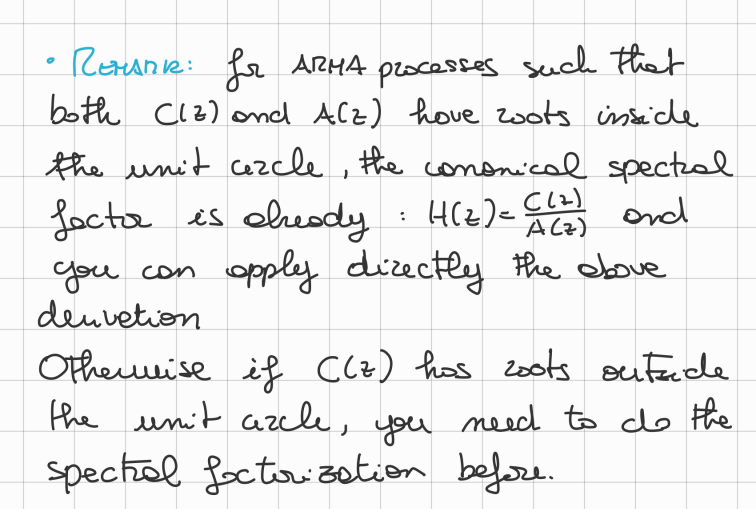 • REMARK: for ARMA processes such that
both C(z) and A(z) have roots inside
the unit circle, the canonical spectral
factor is already : H(z) = C(z)/A(z) and
you can apply directly the above
derivation
Otherwise if C(z) has roots outside
the unit circle, you need to do the
spectral factorization before.